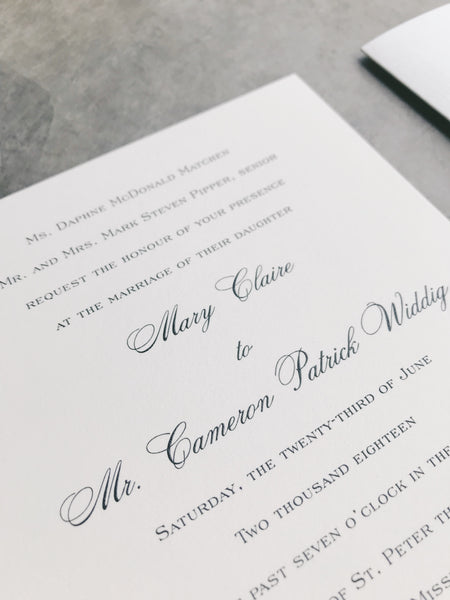 Ms. Daphne McDonald Matchen
Mr. and Mrs. Mark Steven Pipper, senior
request the honour of your presence
at the marriage of their daughter
Mary Claire
to
Mr. Cameron Patrick Widdig
Saturday, the twenty-third of June
Two thousand eighteen
past seven o'clock in the
of St. Peter